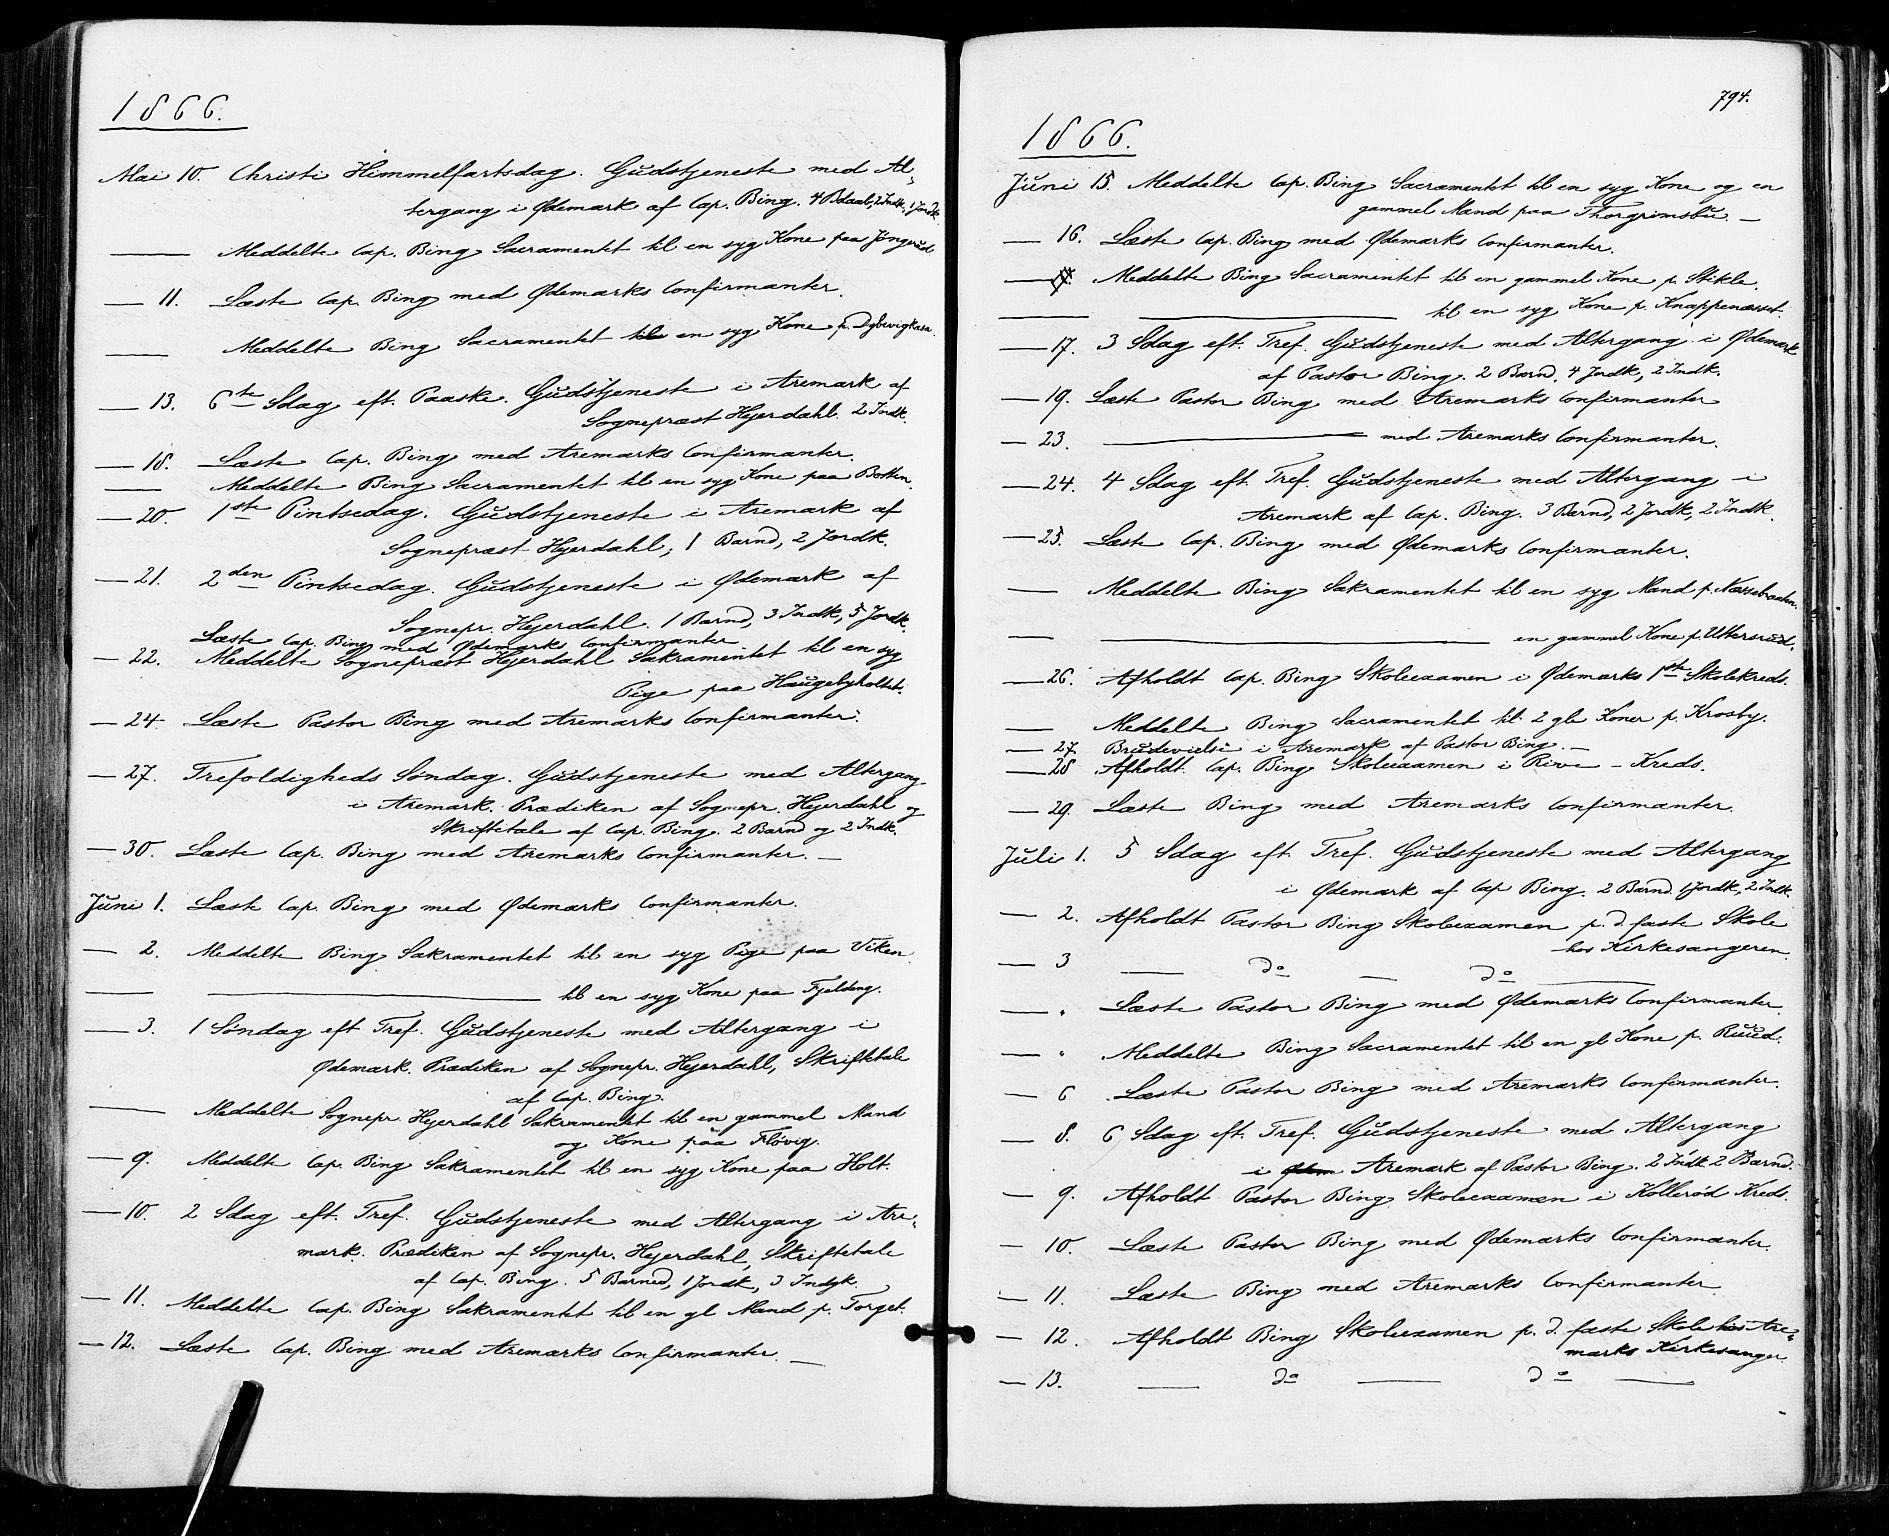 1866.
Mai 10. Christi Himmelfartsdag. Gudstjeneste med Al-
tergang i Ødemark af Cap. Bing. 4 Bdaab, 2 Indk, 1 Jordk
— Meddelte Cap. Bing Sacramentet til en syg Kone paa Jøngerud
— 11. Læste Cap. Bing med Ødemarks Confirmanter.
— Meddelte Bing Sacramentet til en syg Kone p. Dybevigkasa.
— 13. 6te Sdag eft. Paaske. Gudstjeneste i Aremark af
Sognepræst Hjerdahl. 2 Indk.
— 18. Læste Cap. Bing med Aremarks Confirmanter.
— Meddelte Bing Sacramentet til en syg Kone paa Botten.
— 20. 1ste Pintsedag. Gudstjeneste i Aremark af
Sognepræst Hjerdahl, 1 Barnd, 2 Jordk.
— 21. 2den Pintsedag. Gudstjeneste i Ødemark af
Sognepr. Hjerdahl. 1 Barnd, 3 Indk, 5 Jordk.
Læste Cap. Bing med Ødemarks Confirmanter
— 22. Meddelte Sognepræst Hjerdahl Sakramentet til en syg
Pige paa Haugebyholtet.
— 24. Læste Pastor Bing med Aremarks Confirmanter.
— 27. Trefoldigheds Søndag. Gudstjeneste med Altergang
i Aremark. Prædiken af Sognepr. Hjerdahl og
Skriftetale af Cap. Bing. 2 Barnd og 2 Indk.
— 30. Læste Cap. Bing med Aremarks Confirmanter. —
Juni 1. Læste Cap. Bing med Ødemarks Confirmanter.
— 2. Meddelte Bing Sakramentet til en syg Pige paa Viken.
— — til en syg Kone paa Fjelding.
— 3. 1 Søndag eft Tref. Gudstjeneste med Altergang i
Ødemark. Prædiken af Sognepr. Hjerdahl, Skriftetale
af Cap. Bing.
— Meddelte Sognepr. Hjerdahl Sakramentet til en gammel Mand
og Kone paa Fløvig.
— 9. Meddelte Cap. Bing Sakramentet til en syg Kone paa Holt.
— 10. 2 Sdag eft. Tref. Gudstjeneste med Altergang i Are-
mark. Prædiken af Sognepr. Hjerdahl, Skriftetale
af Cap. Bing. 5 Barned, 1 Jordk, 3 Indgk.
— 11. Meddelte Cap. Bing Sakramentet til en gl Mand p. Torget.
— 12. Læste Cap. Bing med Aremarks Confirmanter. —
794.
1866.
Juni 15. Meddelte Cap. Bing Sacramentet til en syg Kone og en
gammel Mand paa Thorgrimsbu. —
— 16. Læste Cap. Bing med Ødemarks Confirmanter.
— Meddelte Bing Sacramentet til en gammel Kone p. Stikle.
— — til en syg Kone p. Knappenæsset.
— 17. 3 Sdag eft. Tref. Gudstjeneste med Altergang i Ødemark
af Pastor Bing. 2 Barnd, 4 Jordk, 2 Indk.
— 19. Læste Pastor Bing med Aremarks Confirmanter
— 23. — med Aremarks Confirmanter.
— 24. 4 Sdag eft. Tref. Gudstjeneste med Altergang i
Aremark af Cap. Bing. 3 Barnd, 2 Jordk, 2 Indk.
— 25. Læste Cap. Bing med Ødemarks Confirmanter.
— Meddelte Bing Sakramentet til en syg Mand p. Næssebraaten.
— — en gammel Kone p. Uttersrud.
— 26. Afholdt Cap. Bing Skoleexamen i Ødemarks 1ste Skolekreds.
— Meddelte Bing Sacramentet til 2 gle Koner p. Krosby.
— 27. Brudevielse i Aremark af Pastor Bing. —
— 28 Afholdt Cap. Bing Skoleexamen i Rive - Kreds.
— 29. Læste Bing med Aremarks Confirmanter.
Juli 1. 5 Sdag eft. Tref. Gudstjeneste med Altergang
i Ødemark af Cap Bing. 2 Barnd 1 Jordk, 2 Indk.
— 2. Afholdt Pastor Bing Skoleexamen p. d. faste Skole
hos Kirkesangeren.
— 3 — do — do —
— " Læste Pastor Bing med Ødemarks Confirmanter.
— " Meddelte Bing Sacramentet til en gl Kone p. Ruud.
— 6 Læste Pastor Bing med Aremarks Confirmanter.
— 8. 6 Sdag eft. Tref. Gudstjeneste med Altergang
i Aremark af Pastor Bing. 2 Indk 2 Barnd.
— 9. Afholdt Pastor Bing Skoleexamen i Kollerød Kreds.
— 10. Læste Pastor Bing med Ødemarks Confirmanter.
— 11. Læste Bing med Aremarks Confirmanter.
— 12. Afholdt Bing Skoleexamen p. d. faste Skole hos Are-
marks Kirkesanger.
— 13. — do — do —